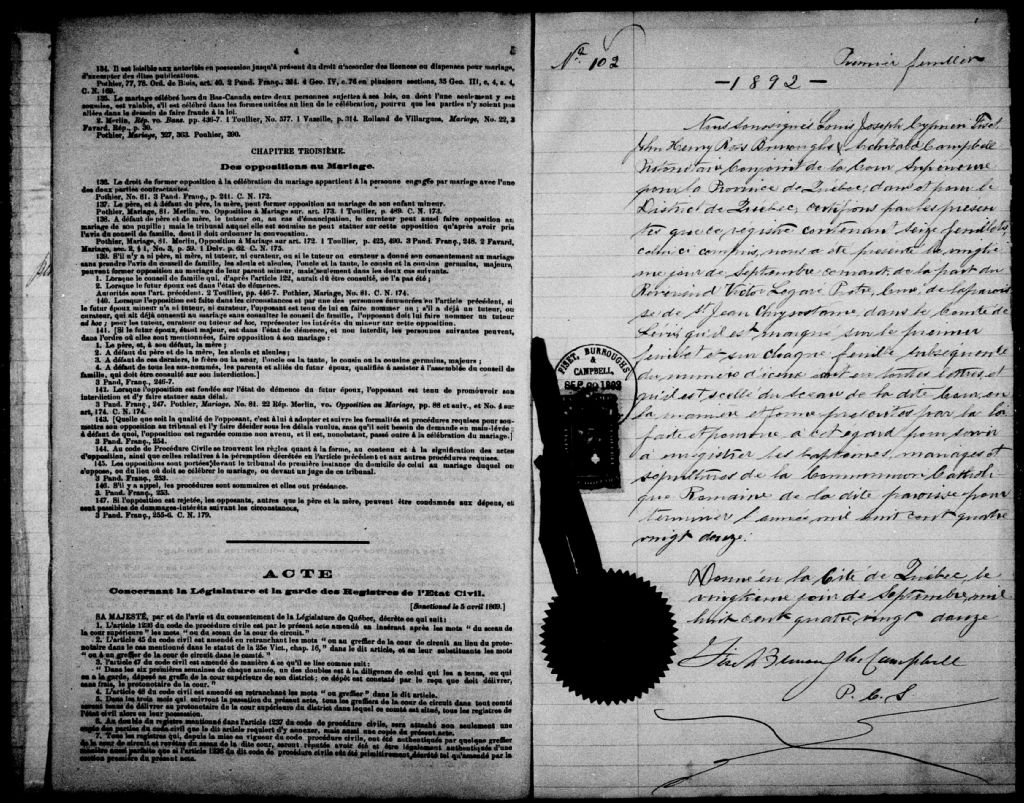 4
5
134. Il est loisible aux autorités en possession jusqu'à présent du droit d'accorder des licences ou dispenses pour mariage,
d'exempter des dites publications.
Pothier, 77, 78. Ord. de Blois, art. 40. 2 Pand. Franç., 364. 4 Geo. IV, c. 76 en plusieurs sections, 35 Geo. III, c. 4, s. 4.
C. N. 169.
135. Le mariage célébré hors du Bas-Canada entre deux personnes sujettes à ses lois, ou dont l'une seulement y est
soumise, est valable, s'il est célébré dans les formes usitées au lieu de la célébration, pourvu que les parties n'y soient pas
allées dans le dessein de faire fraude à la loi.
2 Merlin, Rép. vo. Bans. pp. 436-7. 1 Toullier, No. 577. 1 Vazeille, p. 314. Rolland de Villargues, Mariage, No. 22, 3
Favard, Rép., p. 30.
Pothier, Mariage, 327, 363. Ponhier, 390.
CHAPITRE TROISIÈME.
Des oppositions au Mariage.
136. Le droit de former opposition à la célébration du mariage appartient à la personne engagée par mariage avec l'une
des deux parties contractantes.
Pothier, No. 81. 3 Pand. Franç., p. 241. C. N. 172.
137. Le père, et à défaut du père, la mère, peut former opposition au mariage de son enfant mineur.
Pothier, Mariage, 81. Merlin, vo. Opposition à Mariage sur. art. 173. 1 Toullier, p. 489. C. N. 173.
138. A défaut de père et de mère, le tuteur ou, au cas d'émancipation, le curateur peut aussi faire opposition au
mariage de son pupille; mais le tribunal auquel elle est soumise ne peut statuer sur cette opposition qu'après avoir pris
l'avis du conseil de famille, dont il doit ordonner la convocation.
Pothier, Mariage, 81. Merlin, Opposition à Mariage sur art. 172. 1 Toullier, p. 425, 490. 3 Pand. Franç., 248. 2 Favard,
Mariage, sec. 2, § 1, No. 3, p. 59. 1 Delv. p. 62. C. N. 175.
139. S'il n'y a ni père, ni mère, ni tuteur, ni curateur, ou si le tuteur ou curateur a donné son consentement au mariage
sans prendre l'avis du conseil de famille, les aïeuls et aïeules, l'oncle et la tante, le cousin et la cousine germains, majeurs,
peuvent former opposition au mariage de leur parent mineur, mais seulement dans les deux cas suivants.
1. Lorsque le conseil de famille qui, d'après l'article 122, aurait dû être consulté, ne l'a pas été.
2. Lorsque le futur époux est dans l'état de démence.
Autorités sous l'art. précédent. 2 Toullier, pp. 446-7. Pothier, Mariage, No. 81. C. N. 174.
140. Lorsque l'opposition est faite dans les circonstances et par une des personnes énumérées en l'article précédent, si
le futur époux mineur n'a ni tuteur, ni curateur, l'opposant est tenu de lui en faire nommer un; s'il a déjà un tuteur, ou
curateur, qui ait déjà consenti au mariage sans consulter le conseil de famille, l'opposant doit lui faire nommer un tuteur
ad hoc; pour les tuteur, curateur ou tuteur ad hoc, représenter les intérêts du mineur sur cette opposition.
141. [Si le futur époux, étant majeur, est dans l'état de démence, et non interdit, les personnes suivantes peuvent,
dans l'ordre où elles sont mentionnées, faire opposition à son mariage:
1. Le père, et, à son défaut, la mère;
2. A défaut du père et de la mère, les aïeuls et aïeules;
3. A défaut de ces derniers, le frère ou la sœur, l'oncle ou la tante, le cousin ou la cousine germains, majeurs;
4. A défaut de tous les sus-nommés, les parents et alliés du futur époux, qualifiés à assister à l'assemblée du conseil de
famille, qui doit être consulté sur son interdiction.]
3 Pand. Franç., 246-7.
142. Lorsque l'opposition est fondée sur l'état de démence du futur époux, l'opposant est tenu de promouvoir son
interdiction et d'y faire statuer sans délai.
3 Pand. Franç., 247. Pothier, Mariage. No. 81. 22 Rép. Merlin, vo. Opposition au Mariage, pp. 88 et suiv., et No. 4 sur
art. 174. C. N. 174.
143. [Quelle que soit la qualité de l'opposant, c'est à lui à adopter et suivre les formalités et procédures requises pour soumettre
son opposition au tribunal et l'y faire décider sous les délais voulus, sans qu'il soit besoin de demande en main-levée;
à défaut de quoi, l'opposition est regardée comme non avenu, et il est, nonobstant, passé outre à la célébration du mariage.]
3 Pand. Franç., 254.
144. Au code de Procédure Civile se trouvent les règles quant à la forme, au contenu et à la signification des actes
d'opposition, ainsi que celles relatives à la péremption décrétée en l'article précédent et aux autres procédures requises.
145. Les oppositions sont portées devant le tribunal de première instance du domicile de celui au mariage duquel on
s'oppose, ou du lieu où doit se célébrer le mariage, ou devant un juge de ce tribunal.
3 Pand. Franç., 253.
146. S'il y a appel, les procédures sont sommaires et elles ont préséance.
3. Pand. Franç., 253.
147. Si l'opposition est rejetée, les opposants, autres que le père et la mère, peuvent être condamnés aux dépens, et
sont passibles de dommages-intérêts suivant les circonstances,
3 Pand. Franç., 255-6. C. N. 179.
ACTE
Concernant la Législature et la garde des Registres de l'Etat Civil.
[Sanctionné le 5 avril 1869.]
SA MAJESTÉ, par et de l'avis et du consentement de la Législature de Québec, décrète ce qui suit:
1. L'article 1236 du code de procédure civile est par le présent acte amendé en insérant après les mots "du sceau de
la cour supérieure" les mots "ou du sceau de la cour de circuit."
2. L'article 45 du code civil est amendé en retranchant les mots "ou au greffier de la cour de circuit au lieu du protonotaire
dans le cas mentionné dans le statut de la 25e Vict., chap. 16," dans le dit article, et en leur substituant les mots
"ou à un greffier de la cour de circuit dans le comté."
3. l'article 47 du code civil est amendé de manière à ce qu'il se lise comme suit:
"Dans les six premières semaines de chaque année, un des doubles est à la diligence de celui qui les a tenus, ou qui
en a la garde, déposé au greffe de la cour supérieure de son district; ce dépôt est constaté par le reçu que doit délivrer,
sans frais, le protonotaire de la cour."
4. L'article 48 du code civil est amendé en retranchant les mots "ou greffier" dans le dit article.
5. Dans les trois mois qui suivront la passation du présent acte, tous les greffiers de la cour de circuit dans tout comté
seront tenus de délivrer au protonotaire de la cour supérieure du district dans lequel ce comté est situé, tous les registres de
l'état civil alors en leur possession.
6. Au double du registre mentionné dans l'article 1237 du code de procédure civile, sera attaché non seulement une
copie des parties du code civil que le dit article requiert d'y annexer, mais aussi une copie du présent acte.
7. Tous les registres qui, depuis la mise en vigueur du code procédure civile, ont été authentiqués par quelque greffier
de la cour de circuit et revêtus du sceau de la dite cour, seront réputés avoir été et être légalement authentiqués d'une
manière aussi parfaite que si l'article 1236 du dit code de procédure civile eût été primitivement décrété tel qu'amendé par la
section première du présent acte.
No. 102
Premier feuillet
- 1892 -
Nous soussignés Louis Joseph Cyprien Fiset
John Henry Ross Burroughs & Archibald Campbell
Protonotaire Conjoint de la Cour Supérieure
pour la Province de Québec, dans et pour le
District de Québec, certifions par les présen
tes que ce registre contenant seize feuillets,
celui ci compris, nous a été présenté le vingtiè
me jour de Septembre courant de la part du
Révérend Victor Legaré Ptre, Curé de la parois
se de St Jean Chrysostome dans le Comté de
Lévis qu'il est marqué sur le premier
feuillet et sur chaque feuillet subséquent
du numéro d'iceux écrit en toutes lettres et
qu'il est scellé du sceau de la dite Cour en
la manière et forme prescrites par la loi
faite et pourvue à cet égard pour servir
à enregistrer les baptêmes, mariages et
sépultures de la Communion Catholi
que Romaine de la dite paroisse pour
terminer l'année mil huit cent quatre
vingt douze.
Donné en la Cité de Québec, le
vingtième jour de Septembre mil
huit cent quatre vingt douze
Fiset Burroughs Campbell
P. C. S
FISET, BURROUGHS
&
CAMPBELL,
SEP 20 1892